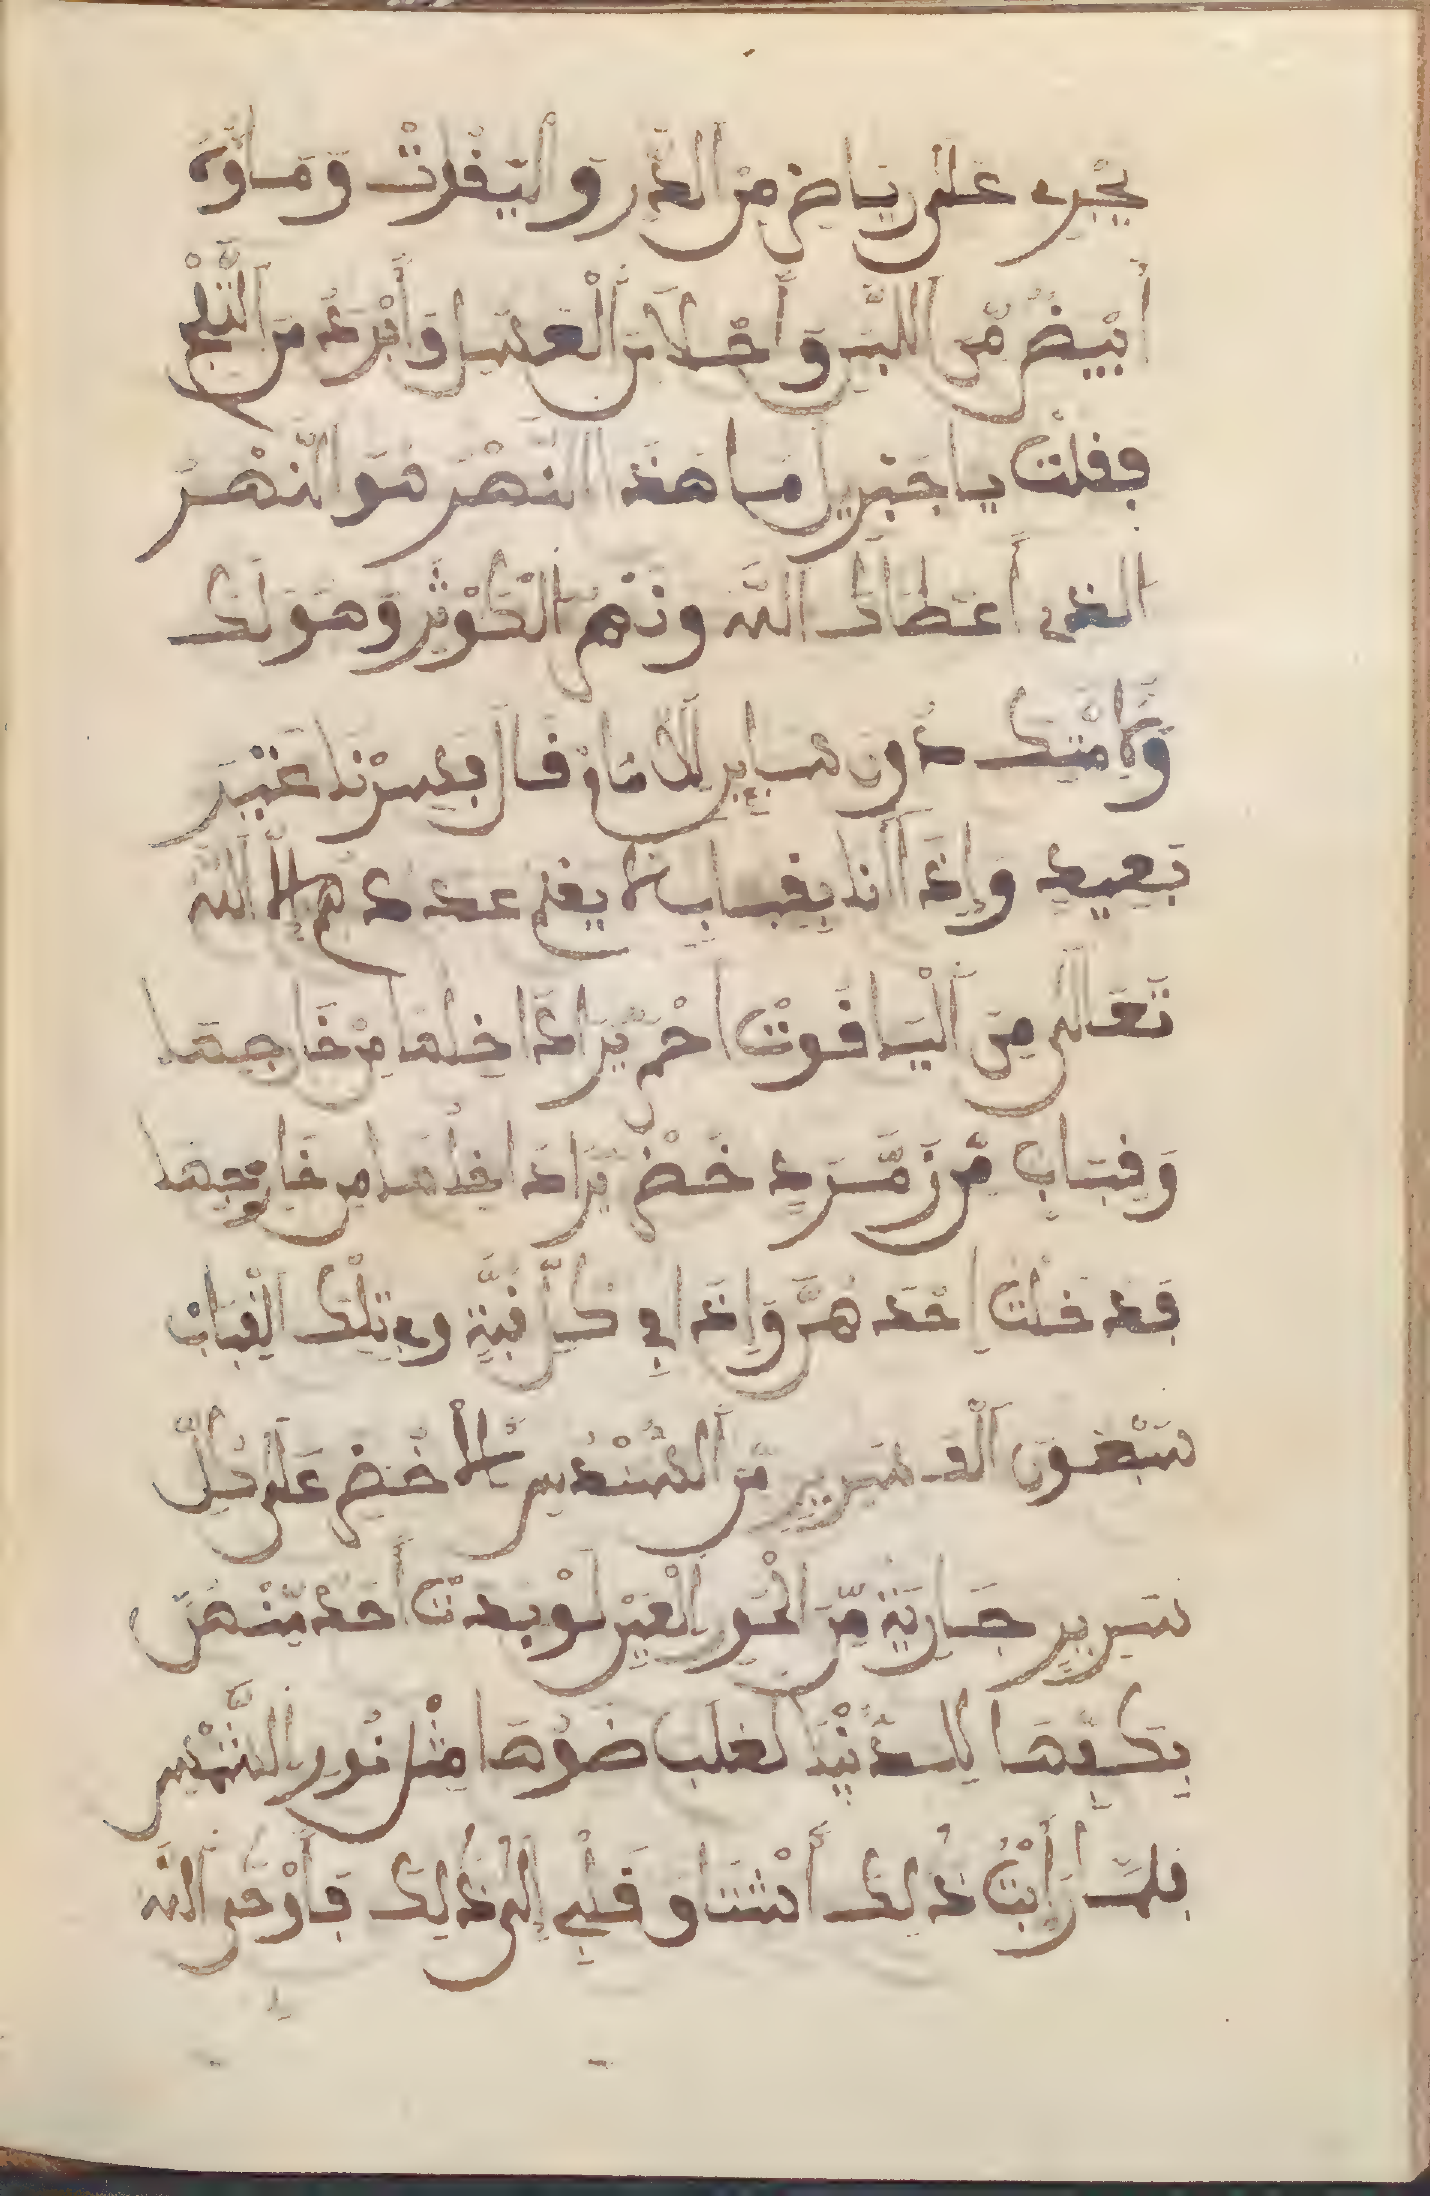 يجري على رياض من الدر واليفوت وماؤه
أبيض من اللبن وأحلا من العسل وأبرد من الثلج
فقلت يا جبريل ما هذا النهر هو النهر
الذي أعطاك الله ونهر الكوثر وهو لك
ولأمتك دون ساير الأمم قال فسرنا غير
بعيد وإذا أنا بقباب لا يعلم عددهم إلا الله
تعالى من الياقوت احمر يرا داخلها من خارجها
وقباب من زمرد خضر يرا داخلها من خارجها
فدخلت إحدهن وإذا في كل قبة من تلك القباب
سبعون ألف سرير من السندس الأخضر على كل
سرير جارية من الحور العين لو بدت أحد منهن
بكفها للدنيا لغلب ضوءها مثل نور الشمس
فلما رأيت ذلك أشتاق قلبي إلى ذلك فأوحى الله